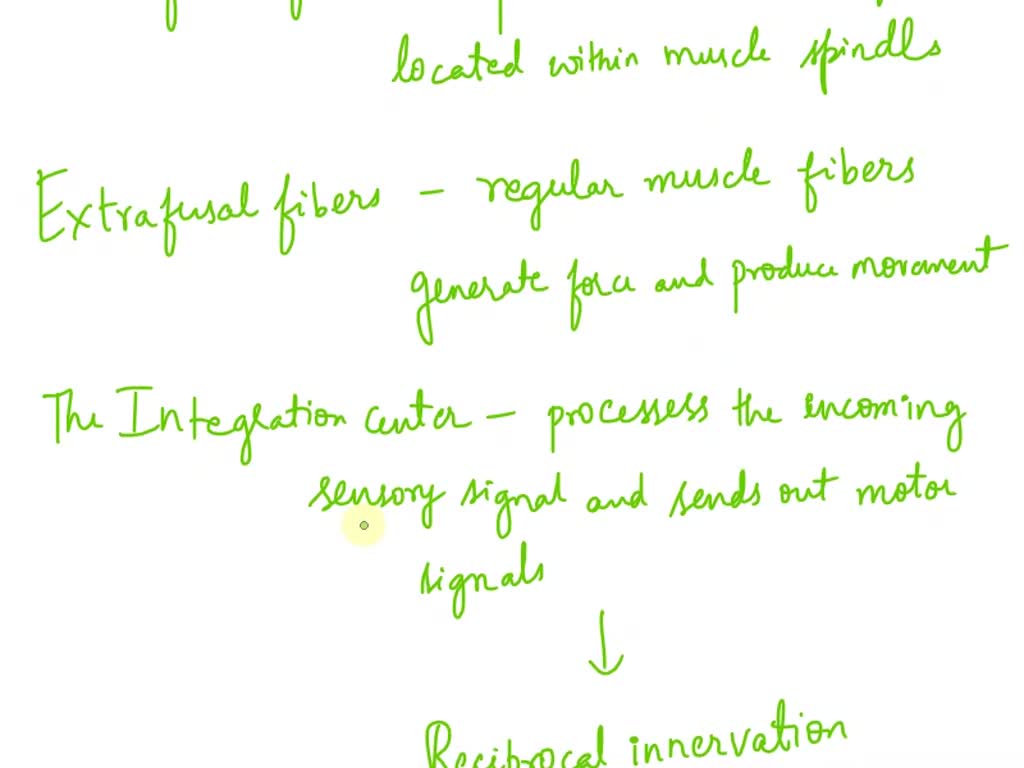 located within muscle spindls
Extrafusal fibers - regular muscle fibers
generate force and produce movement
The Integration center - processess the incoming
sensory signal and sends out motor
signals
↓
Reciprocal innervation